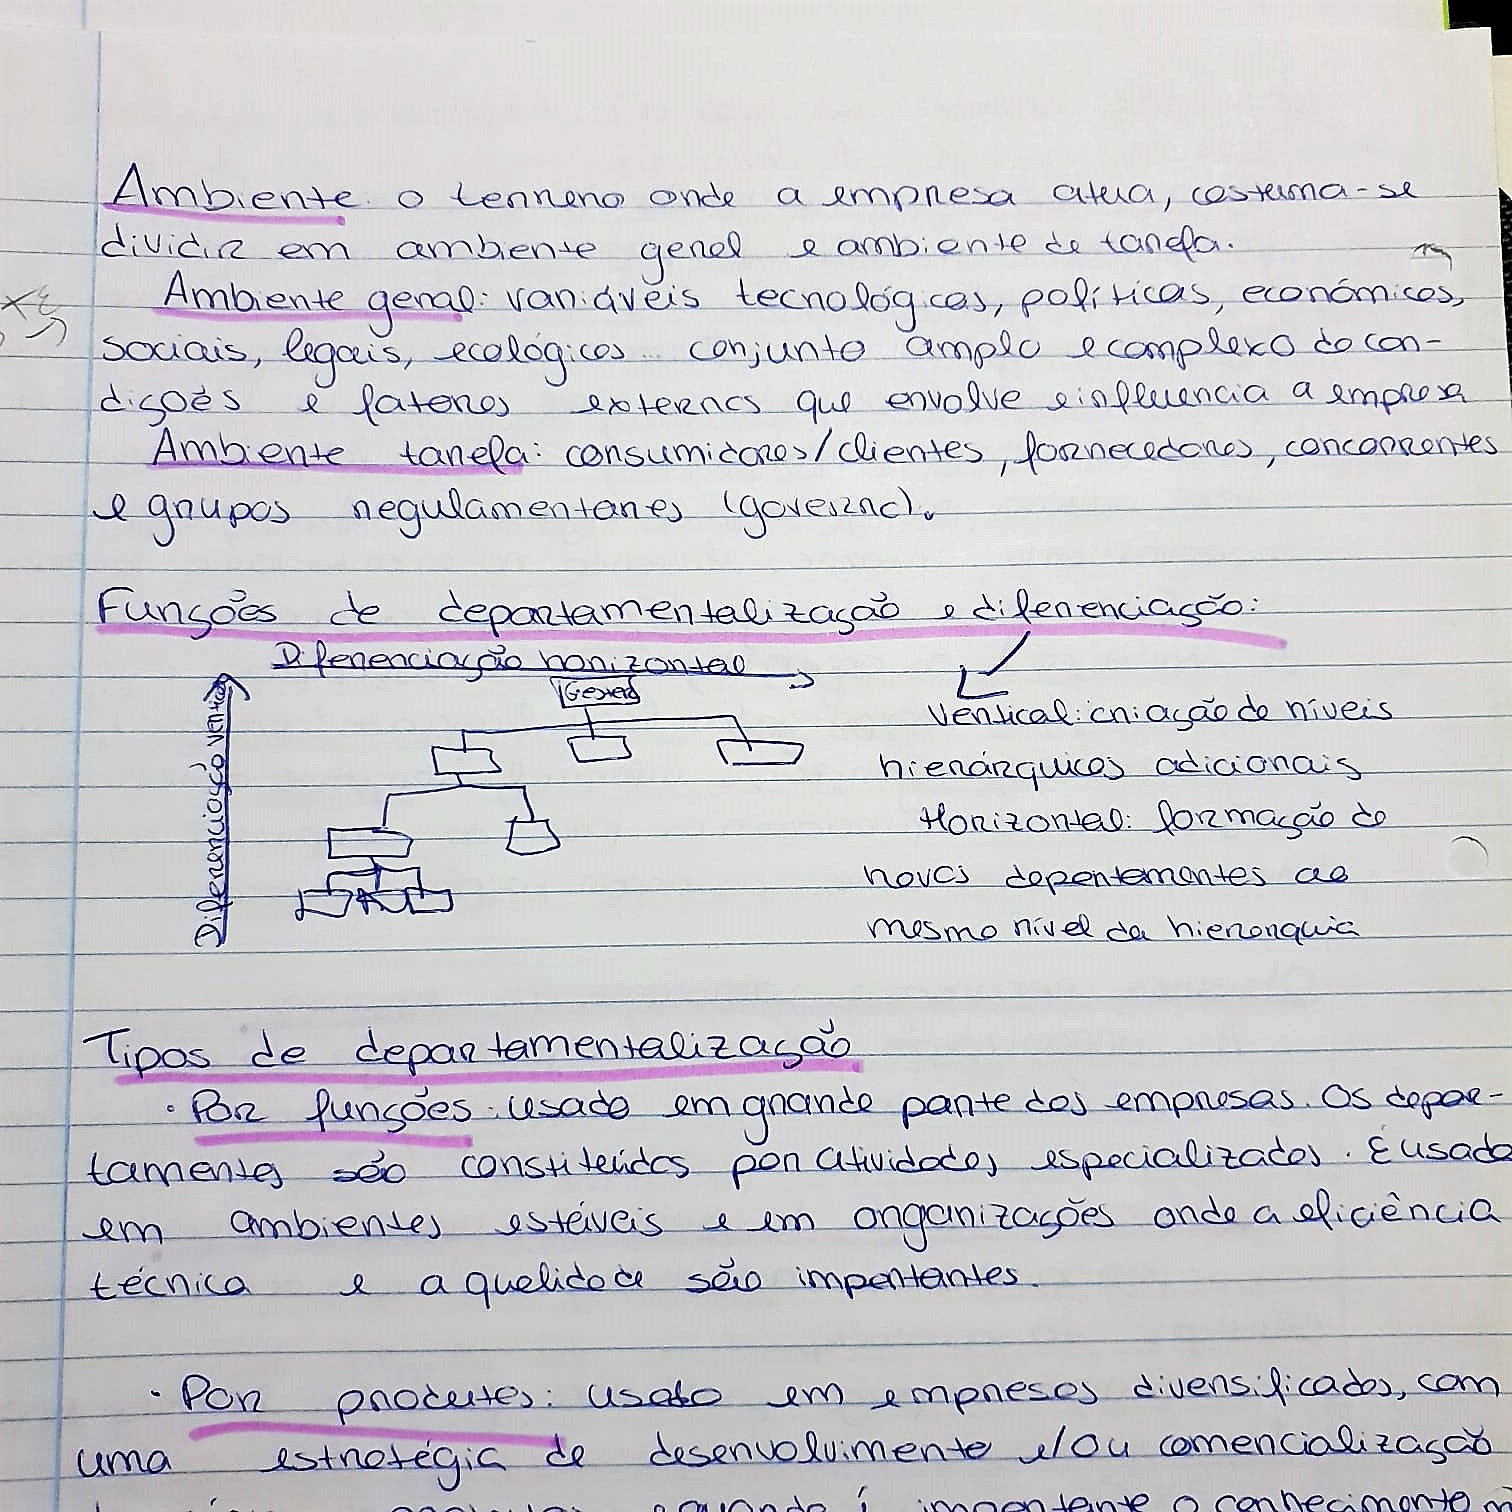 Ambiente: o terreno onde a empresa atua, costuma-se
dividir em ambiente geral e ambiente de tarefa.
Ambiente geral: variáveis tecnológicas, políticas, económicas,
sociais, legais, ecológicos... conjunto amplo e complexo de con-
dições e fatores externos que envolve e influencia a empresa
Ambiente tarefa: consumidores/clientes, fornecedores, concorrentes
e grupos regulamentares (governo).
Funções de departamentalização e diferenciação:
Diferenciação horizontal
Diferenciação vertical
Vertical: criação de níveis
hierárquicos adicionais
Horizontal: formação de
novos departamentos ao
mesmo nível da hierarquia
Tipos de departamentalização
· Por funções: usado em grande parte das empresas. Os depar-
tamentos são constituídos por atividades especializados. É usado
em ambientes estáveis e em organizações onde a eficiência
técnica e a qualidade são importantes.
· Por produtos: usado em empresas diversificados, com
uma estratégia de desenvolvimento e/ou comercialização
importante o conhecimento